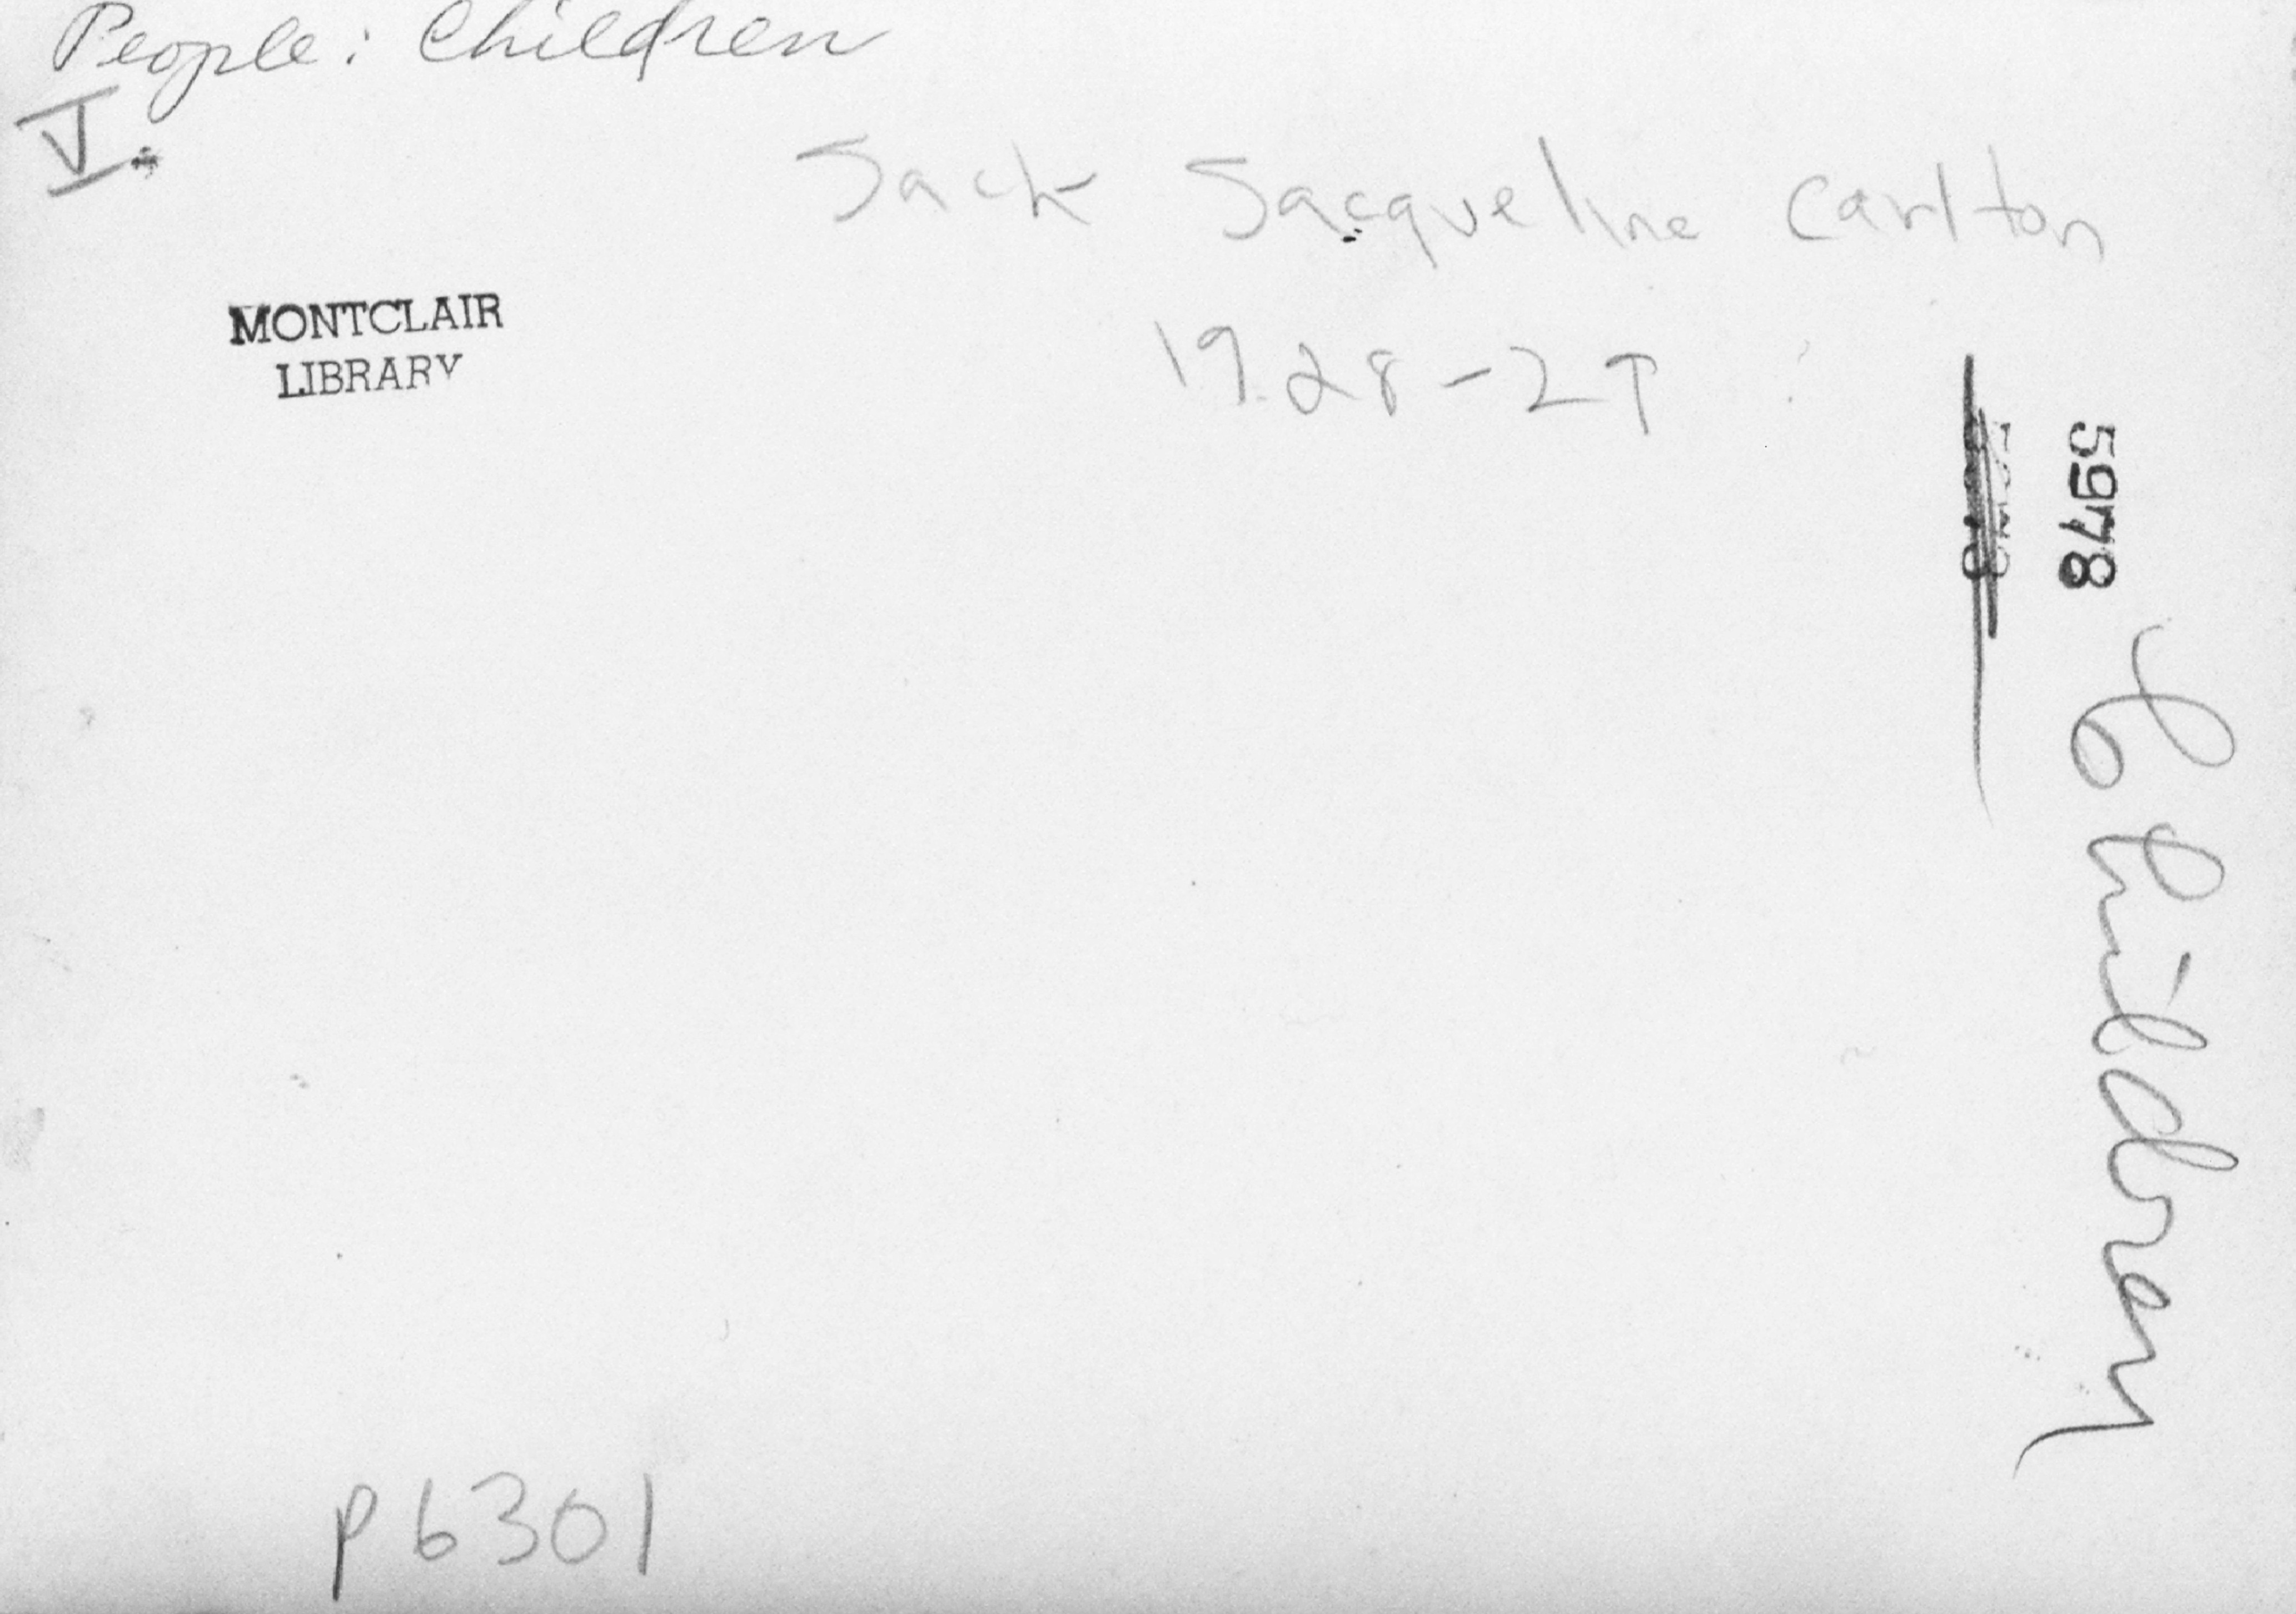 People: Children
V.
Jack Jacqueline Carlton
1928-29
MONTCLAIR
LIBRARY
5978
Children
P6301